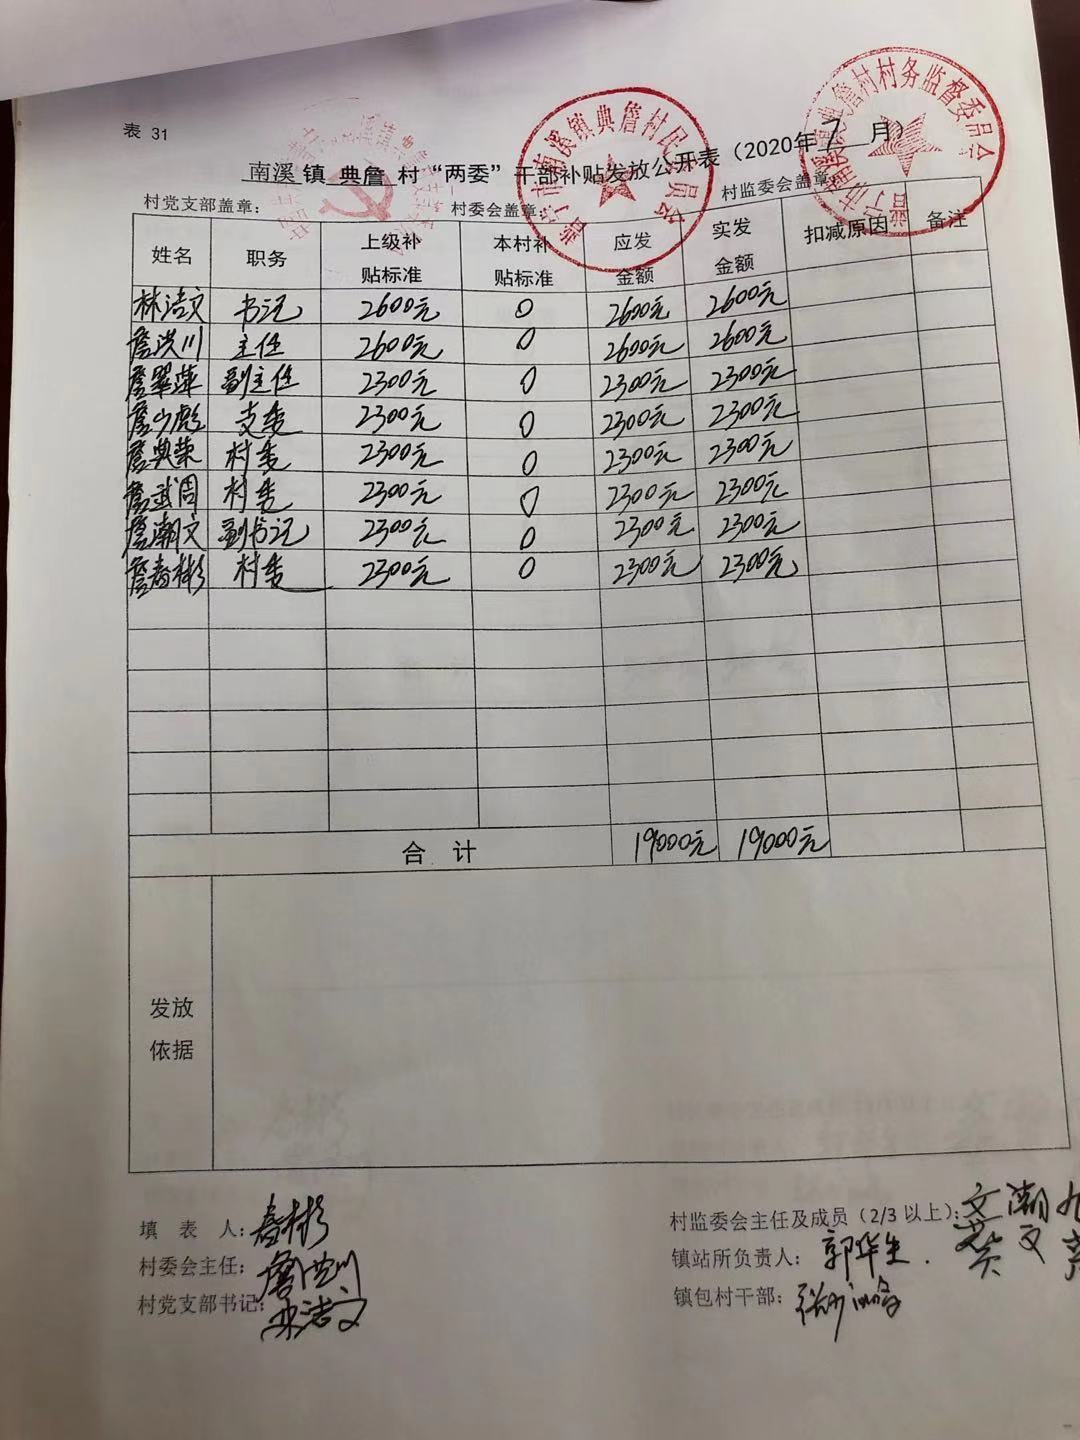 表 31
南溪 镇 典詹 村 “两委” 干部补贴发放公开表 (2020年 7 月)
村党支部盖章: 村委会盖章: 村监委会盖章
普宁市南溪镇典詹村民委员会
典詹村村务监督委员会
姓名 职务 上级补贴标准 本村补贴标准 应发金额 实发金额 扣减原因 备注
林洁文 书记 2600元 0 2600元 2600元
詹洪川 主任 2600元 0 2600元 2600元
詹翠萍 副主任 2300元 0 2300元 2300元
詹少彪 支委 2300元 0 2300元 2300元
詹典荣 村委 2300元 0 2300元 2300元
詹武周 村委 2300元 0 2300元 2300元
詹潮文 副书记 2300元 0 2300元 2300元
詹春彬 村委 2300元 0 2300元 2300元
合 计 19000元 19000元
发放
依据
填 表 人: 春彬
村委会主任: 詹洪川
村党支部书记: 林洁文
村监委会主任及成员 (2/3 以上): 文潮
镇站所负责人: 郭华生
镇包村干部: